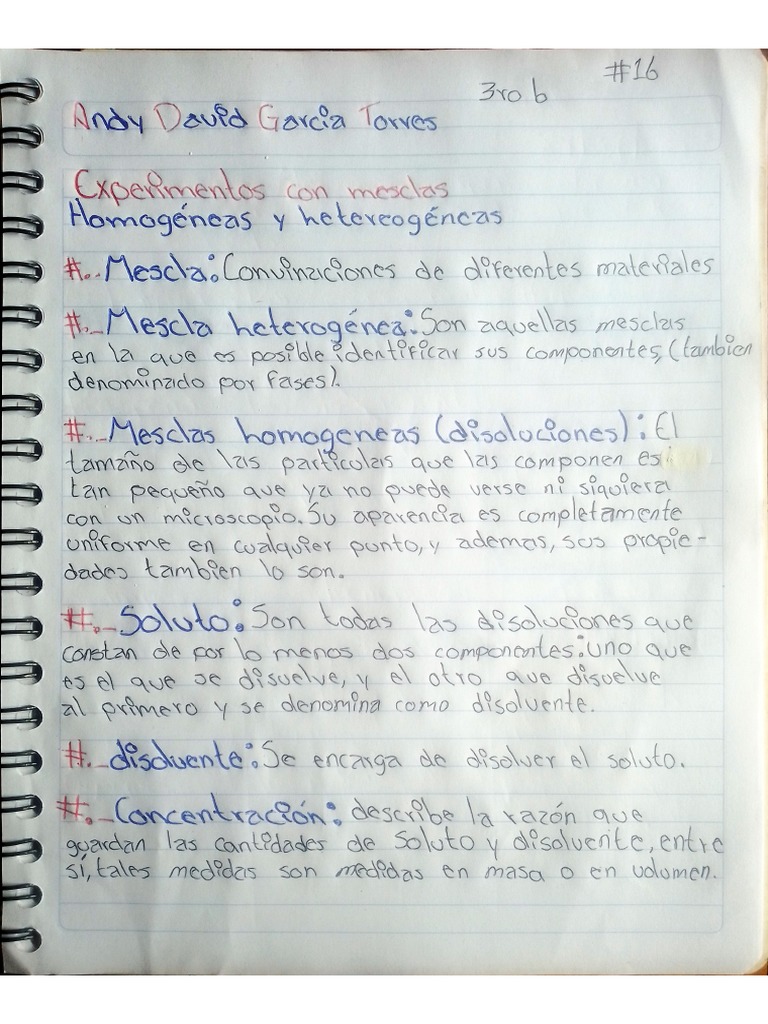 #16
3ro b
Andy David Garcia Torres
Experimentos con mesclas
Homogéneas y hetereogéneas
#._ Mescla: Convinaciones de diferentes materiales
#._ Mescla heterogénea: Son aquellas mesclas
en la que es posible identificar sus componentes, (tambien
denominado por fases).
#._ Mesclas homogeneas (disoluciones): El
tamaño de las particulas que las componen es
tan pequeño que ya no puede verse ni siquiera
con un microscopio. Su aparencia es completamente
uniforme en cualquier punto, y ademas, sus propie-
dades tambien lo son.
#._ Soluto: Son todas las disoluciones que
constan de por lo menos dos componentes: uno que
es el que se disuelve, y el otro que disuelve
al primero y se denomina como disolvente.
#._ disolvente: Se encarga de disolver el soluto.
#._ Concentración: describe la razón que
guardan las cantidades de Soluto y disolvente, entre
sí, tales medidas son medidas en masa o en volumen.